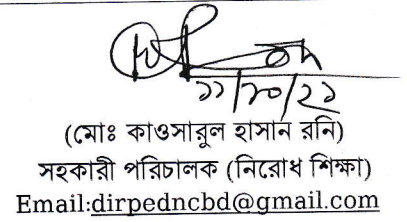 ১১/১০/২১
(মোঃ কাওসারুল হাসান রনি)
সহকারী পরিচালক (নিরোধ শিক্ষা)
Email:dirpedncbd@gmail.com